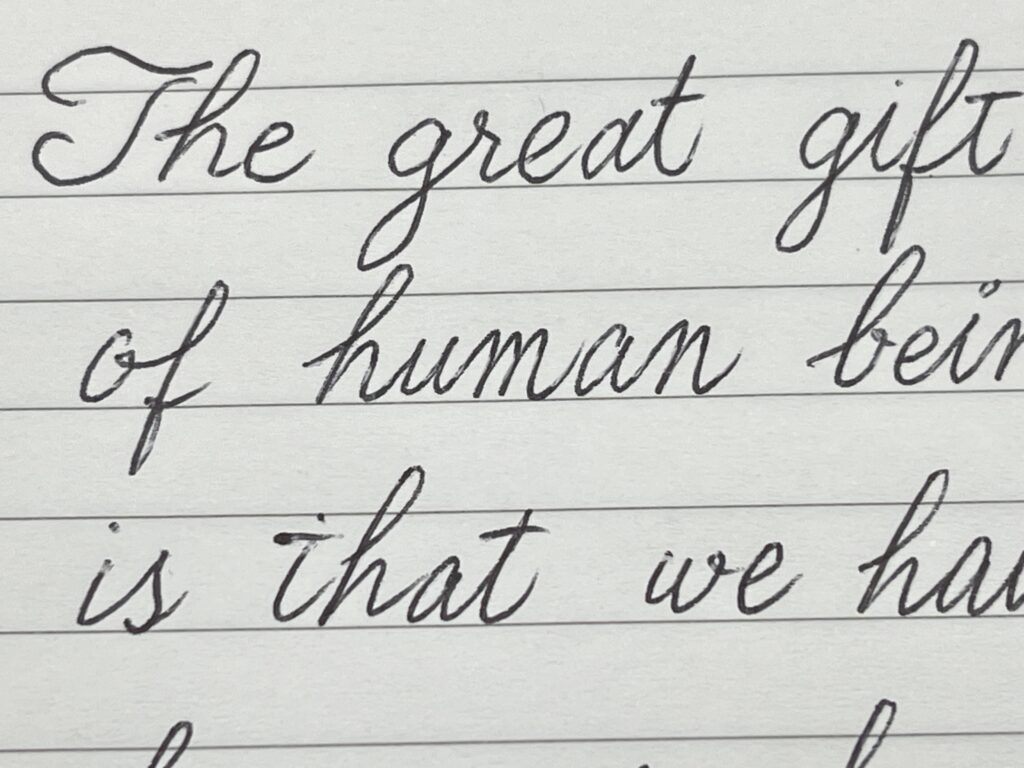 The great gift
of human bein
is that we hav